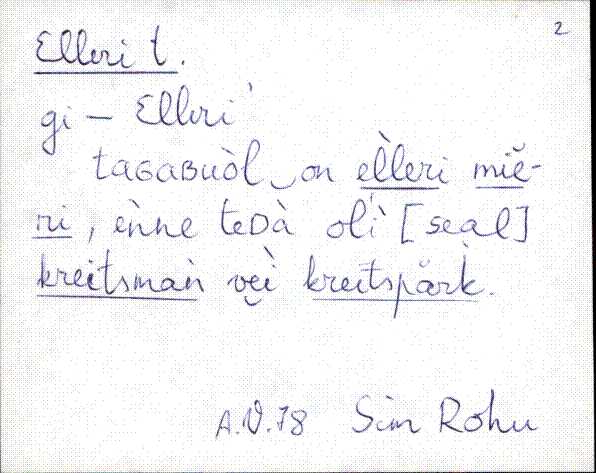 2
Elleri t.
gi – Elleri'
taGaBuòl‿on èlleri miĕ-
ri, ènne teDà olì [seal]
kreitsmaǹ vęì kreitspărk̀.
A.V.78 Sim Rohu